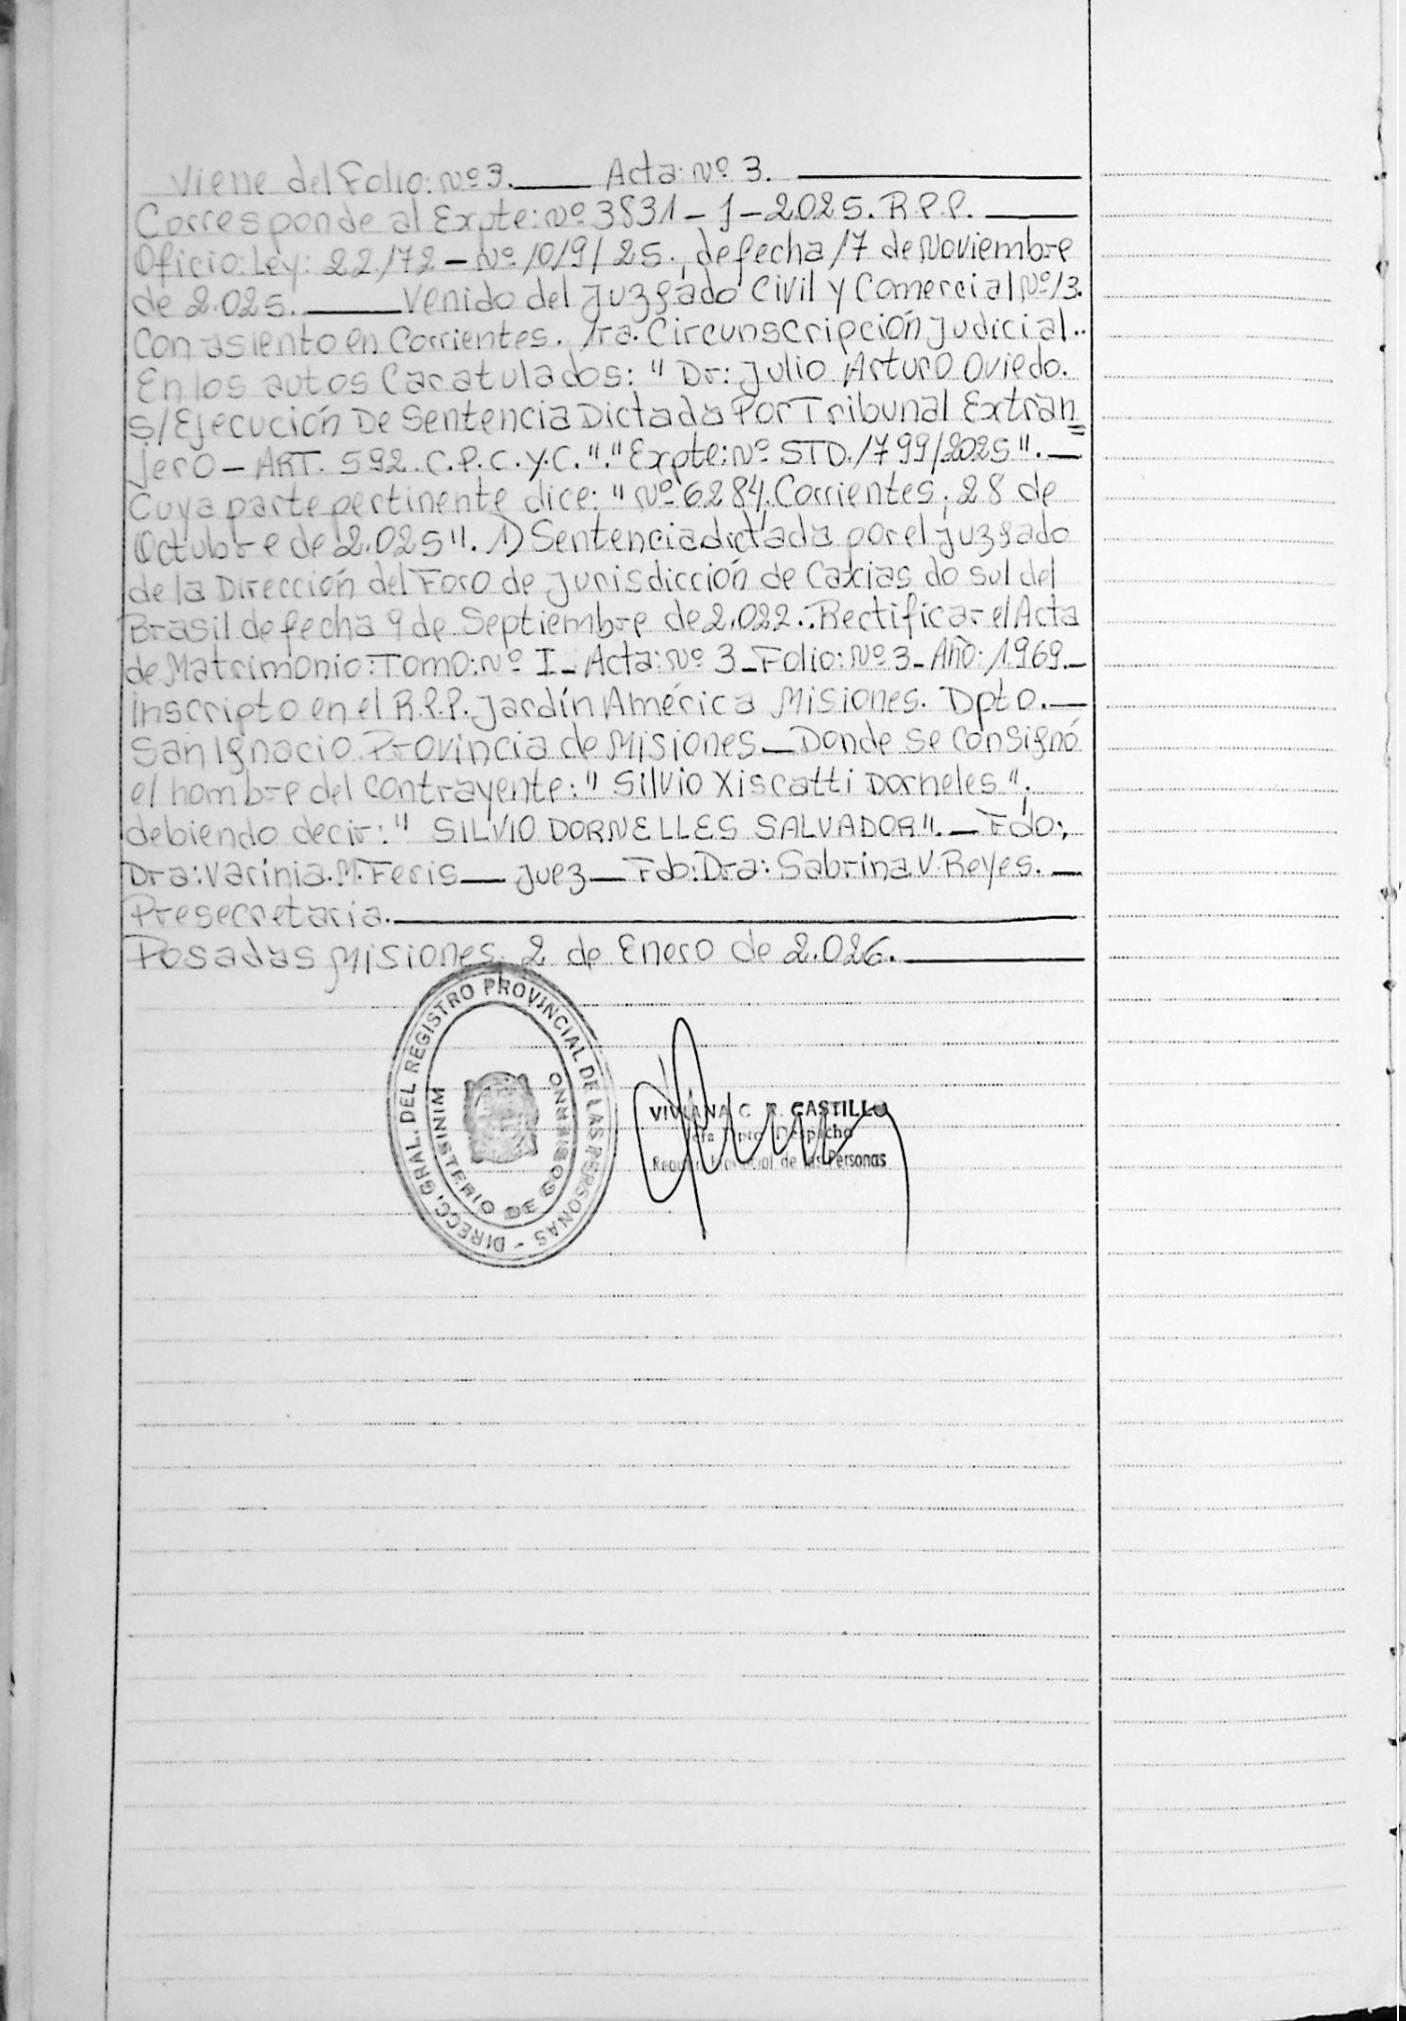 Viene del Folio: Nº 3. ___ Acta: Nº 3. ___
Corresponde al Expte: Nº 3831 - J - 2025. R.P.P. ___
Oficio: Ley: 22172 - Nº 1019/25., de fecha 17 de Noviembre
de 2.025. ___ Venido del Juzgado Civil y Comercial Nº 13.
Con asiento en Corrientes. 1ra. Circunscripción Judicial..
En los autos Caratulados: "Dr: Julio Arturo Oviedo.
S/Ejecución De Sentencia Dictada Por Tribunal Extran=
jero - ART. 592. C.P.C.y.C."."Expte: Nº STD.1799/2025". _
Cuya parte pertinente dice: "Nº 6284. Corrientes, 28 de
Octubre de 2.025". 1) Sentencia dictada por el Juzgado
de la Dirección del Foro de Jurisdicción de Caxias do sul del
Brasil de fecha 9 de Septiembre de 2.022.. Rectificar el Acta
de Matrimonio: Tomo: Nº I_ Acta: Nº 3_ Folio: Nº 3_ Año: 1.969._
Inscripto en el R.P.P. Jardín América Misiones. Dpto. _
San Ignacio Provincia de Misiones _ Donde se Consignó
el nombre del contrayente: "Silvio Xiscatti Dorneles".
debiendo decir: "SILVIO DORNELLES SALVADOR". _ Fdo:
Dra: Varinia. M. Feris _ Juez _ Fdo: Dra: Sabrina V. Reyes. _
Presecretaria. ___
Posadas Misiones, 2 de Enero de 2.026. ___
DIRECC. GRAL. DEL REGISTRO PROVINCIAL DE LAS PERSONAS -
MINISTERIO DE GOBIERNO
VIVIANA C. R. CASTILLO
Despacho
de las Personas